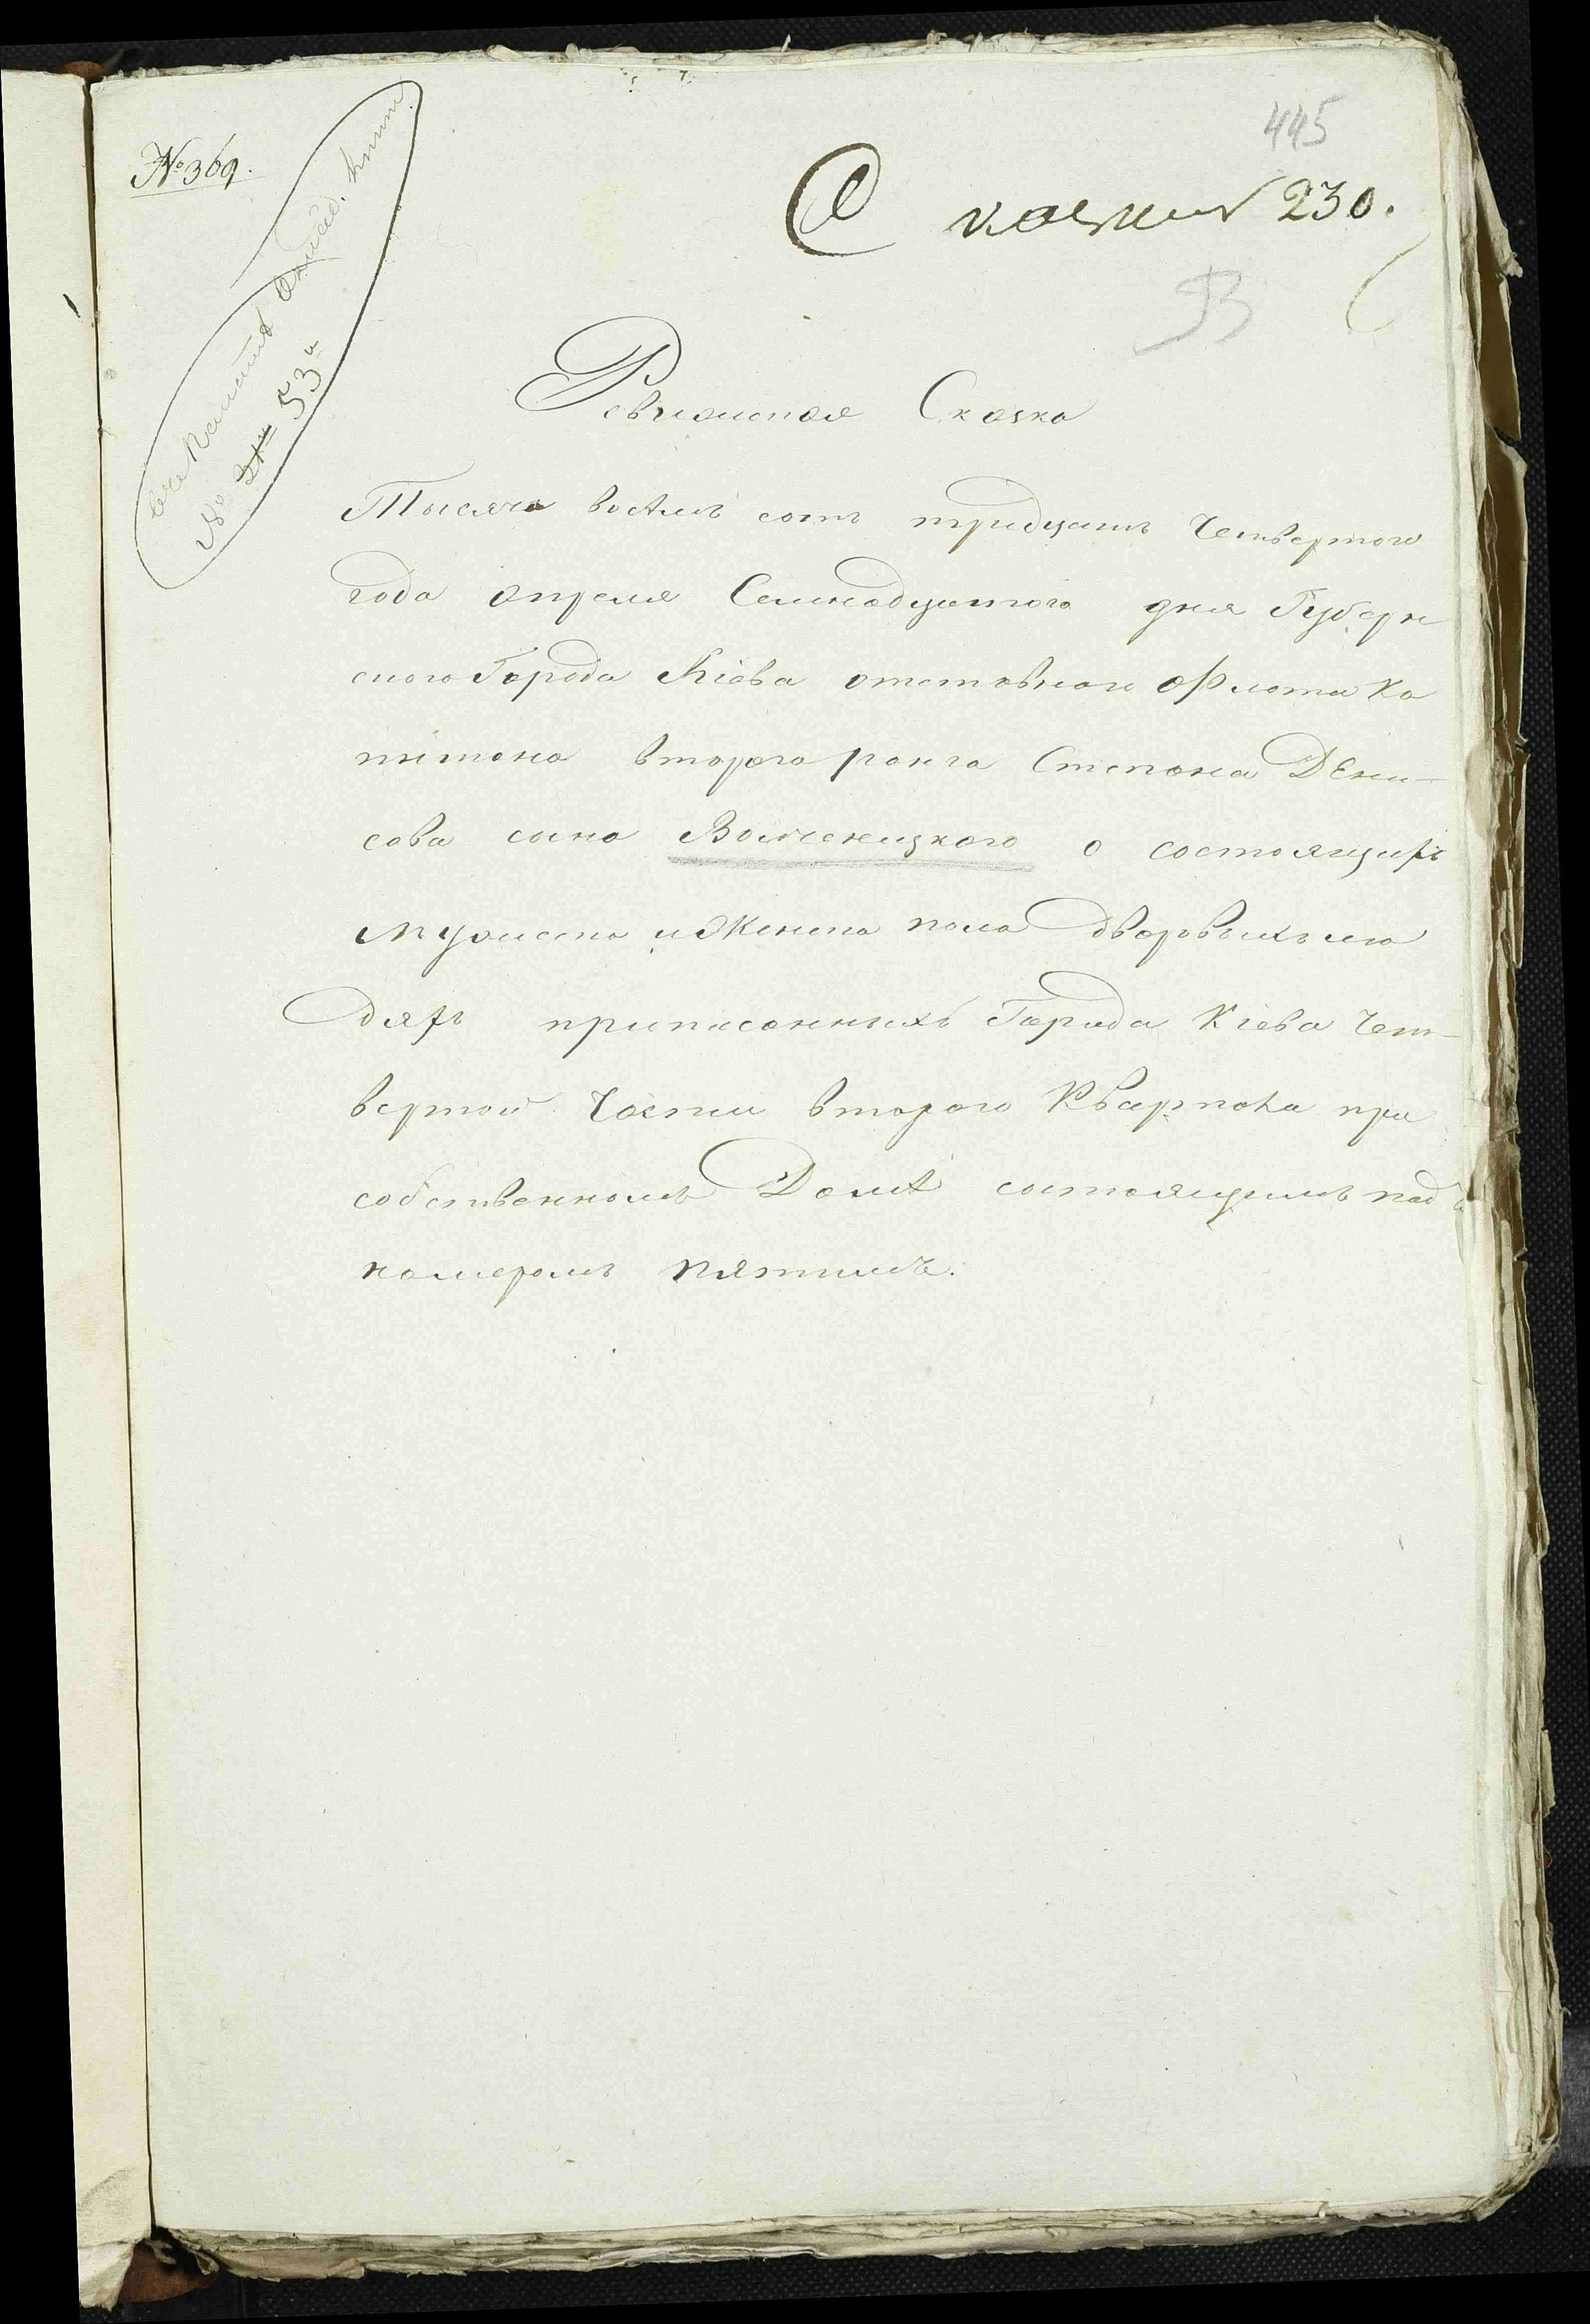 445
№ 369.
Сказка 230.
53
№ 21й 53й
Ревижская Сказка
Тысяча восѣмъ сотъ тридцать Четвертого
года апреля Семнадцатого дня Губерн
ского Города Кіева отставного Флота Ка
питана второго ранга Степана Дени-
сова сына о состоящихъ
мужеска и Женска пола дворовыхъ лю
дяхъ приписанныхъ Города Кіева Чет-
вертой Части второго Квартала при
собственномъ Домѣ состоящимъ подъ
номеромъ пятымъ.